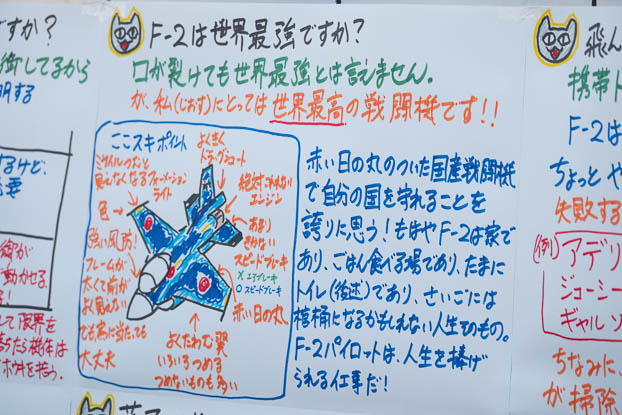 ですか？
F-2は世界最強ですか？
口が裂けても世界最強とは言えません。
が、私(じおす)にとっては世界最高の戦闘機です！！
ここスキポイント
よくまく
ドラッグシュート
ミサイルつむと
見えなくなるフォーメーション
ライト
絶対こわれない
エンジン
色
あまり
きかない
スピードブレーキ
×エアブレーキ
○スピードブレーキ
強い風防！
フレームが
太くて前が
よく見えない
でも鳥に当たっても
大丈夫
赤い日の丸
よくたわむ翼
いろいろつめる
つめないものも多い
赤い日の丸のついた国産戦闘機
で自分の国を守れることを
誇りに思う！もはやF-2は家で
あり、ごはん食べる場であり、たまに
トイレ(後述)であり、さいごには
棺桶になるかもしれない人生そのもの。
F-2パイロットは、人生を捧げ
られる仕事だ！
飛ん
携帯ト
F-2は
ちょっとや
失敗する
(例)アデリ
ジョーシー
ギャルソ
ちなみに、
が掃除
してるから
明する
るけど、
動かせる
して限界を